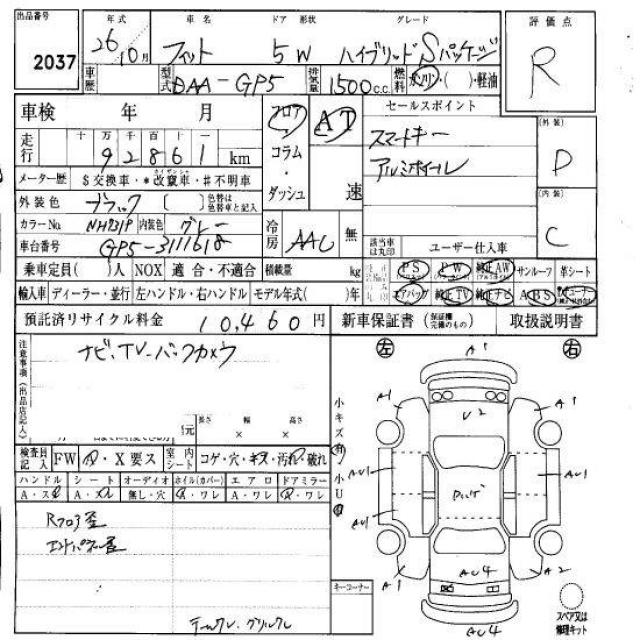 出品番号 年式 車名 ドア 形状 グレード 評価点
2037 26 10月 フィット 5W ハイブリッド Sパッケージ R
車歴 型式 DAA-GP5 排気量 1500 c.c. 燃料 ガソリン・( )・軽油
車検 年 月 フロア AT セールスポイント
走行 十 万 千 百 十 一
92861 km コラム スマートキー (外装)
アルミホイール D
メーター歴 $交換車・*改竄車・#不明車 ダッシュ 速
外装色 ブラック ( ) 色替は色替車と記入 (内装)
カラーNo. NH731P 内装色 グレー 冷房 AAC 無 C
車台番号 GP5-3111618 該当車は丸印 ユーザー仕入車
乗車定員( )人 NOX 適合・不適合 積載量 kg PS PW 純正AW サンルーフ 革シート
輸入車 ディーラー・並行 左ハンドル・右ハンドル モデル年式( )年 エアバッグ 純正TV 純正ナビ ABS
預託済リサイクル料金 10,460円 新車保証書 (保証欄完備のもの) 取扱説明書
注意事項(出品店記入) ナビ・TV・バックカメラ
左 右
A1
小キズ有 小U
A1 U2 A1
長さ 幅 高さ
元 × ×
検査員記入 FW A・X要ス 室内シート コゲ・穴・キズ・汚れ・破れ
AU1 AU1
ハンドル シート オーディオ ホイル(カバー) エアロ ドアミラー
A・スレ A・スレ 無し・穴 A・ワレ A・ワレ A・ワレ
AU1 AU1
Rフロア歪
エンドパネル歪
A1 AU4 A2
キーコーナー
スペア又は
修理キット
テールワレ、グリルワレ
AU4